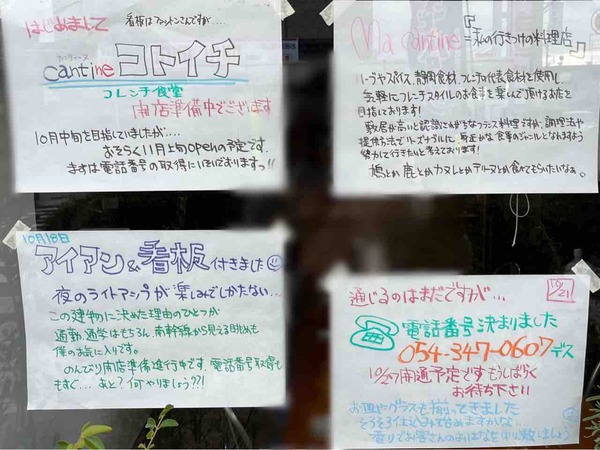 はじめまして
看板はファットンさんですが....
カンティーヌ
cantine コトイチ
フレンチ食堂
開店準備中でございます
10月中旬を目指していましたが....
おそらく11月上旬openの予定です。
まずは電話番号の取得にいそいでおりますっ!!
Ma cantine=私の行きつけの料理店』
ハーブやスパイス、静岡食材、フレンチの代表食材を使用し
気軽にフレンチスタイルのお食事を楽しんで頂けるお店を
目指しております!
敷居が高いと認識されがちなフランス料理ですが、調理法や
提供方法でリーズナブルに、身近な食事のジャンルとなれますよう
努力して行きたいと考えております!
鳩とか鹿とかカヌレとかテリーヌとか食べてもらいたいなぁ。
10月18日
アイアン&看板付きました
夜のライトアップが楽しみでしかたない...
この建物に決めた理由のひとつが
通勤、通学はもちろん、新幹線から見える眺めも
僕のお気に入りです。
のんびり開店準備進行中です、電話番号取得も
もすぐ....あと?何やりましょう??!
10/21
通じるのはまだですが...
電話番号決まりました
054-347-0607デス
10/27開通予定ですもうしばらく
お待ち下さい
お皿やグラスも揃ってきました
そろそろ仕込み始めますかな...